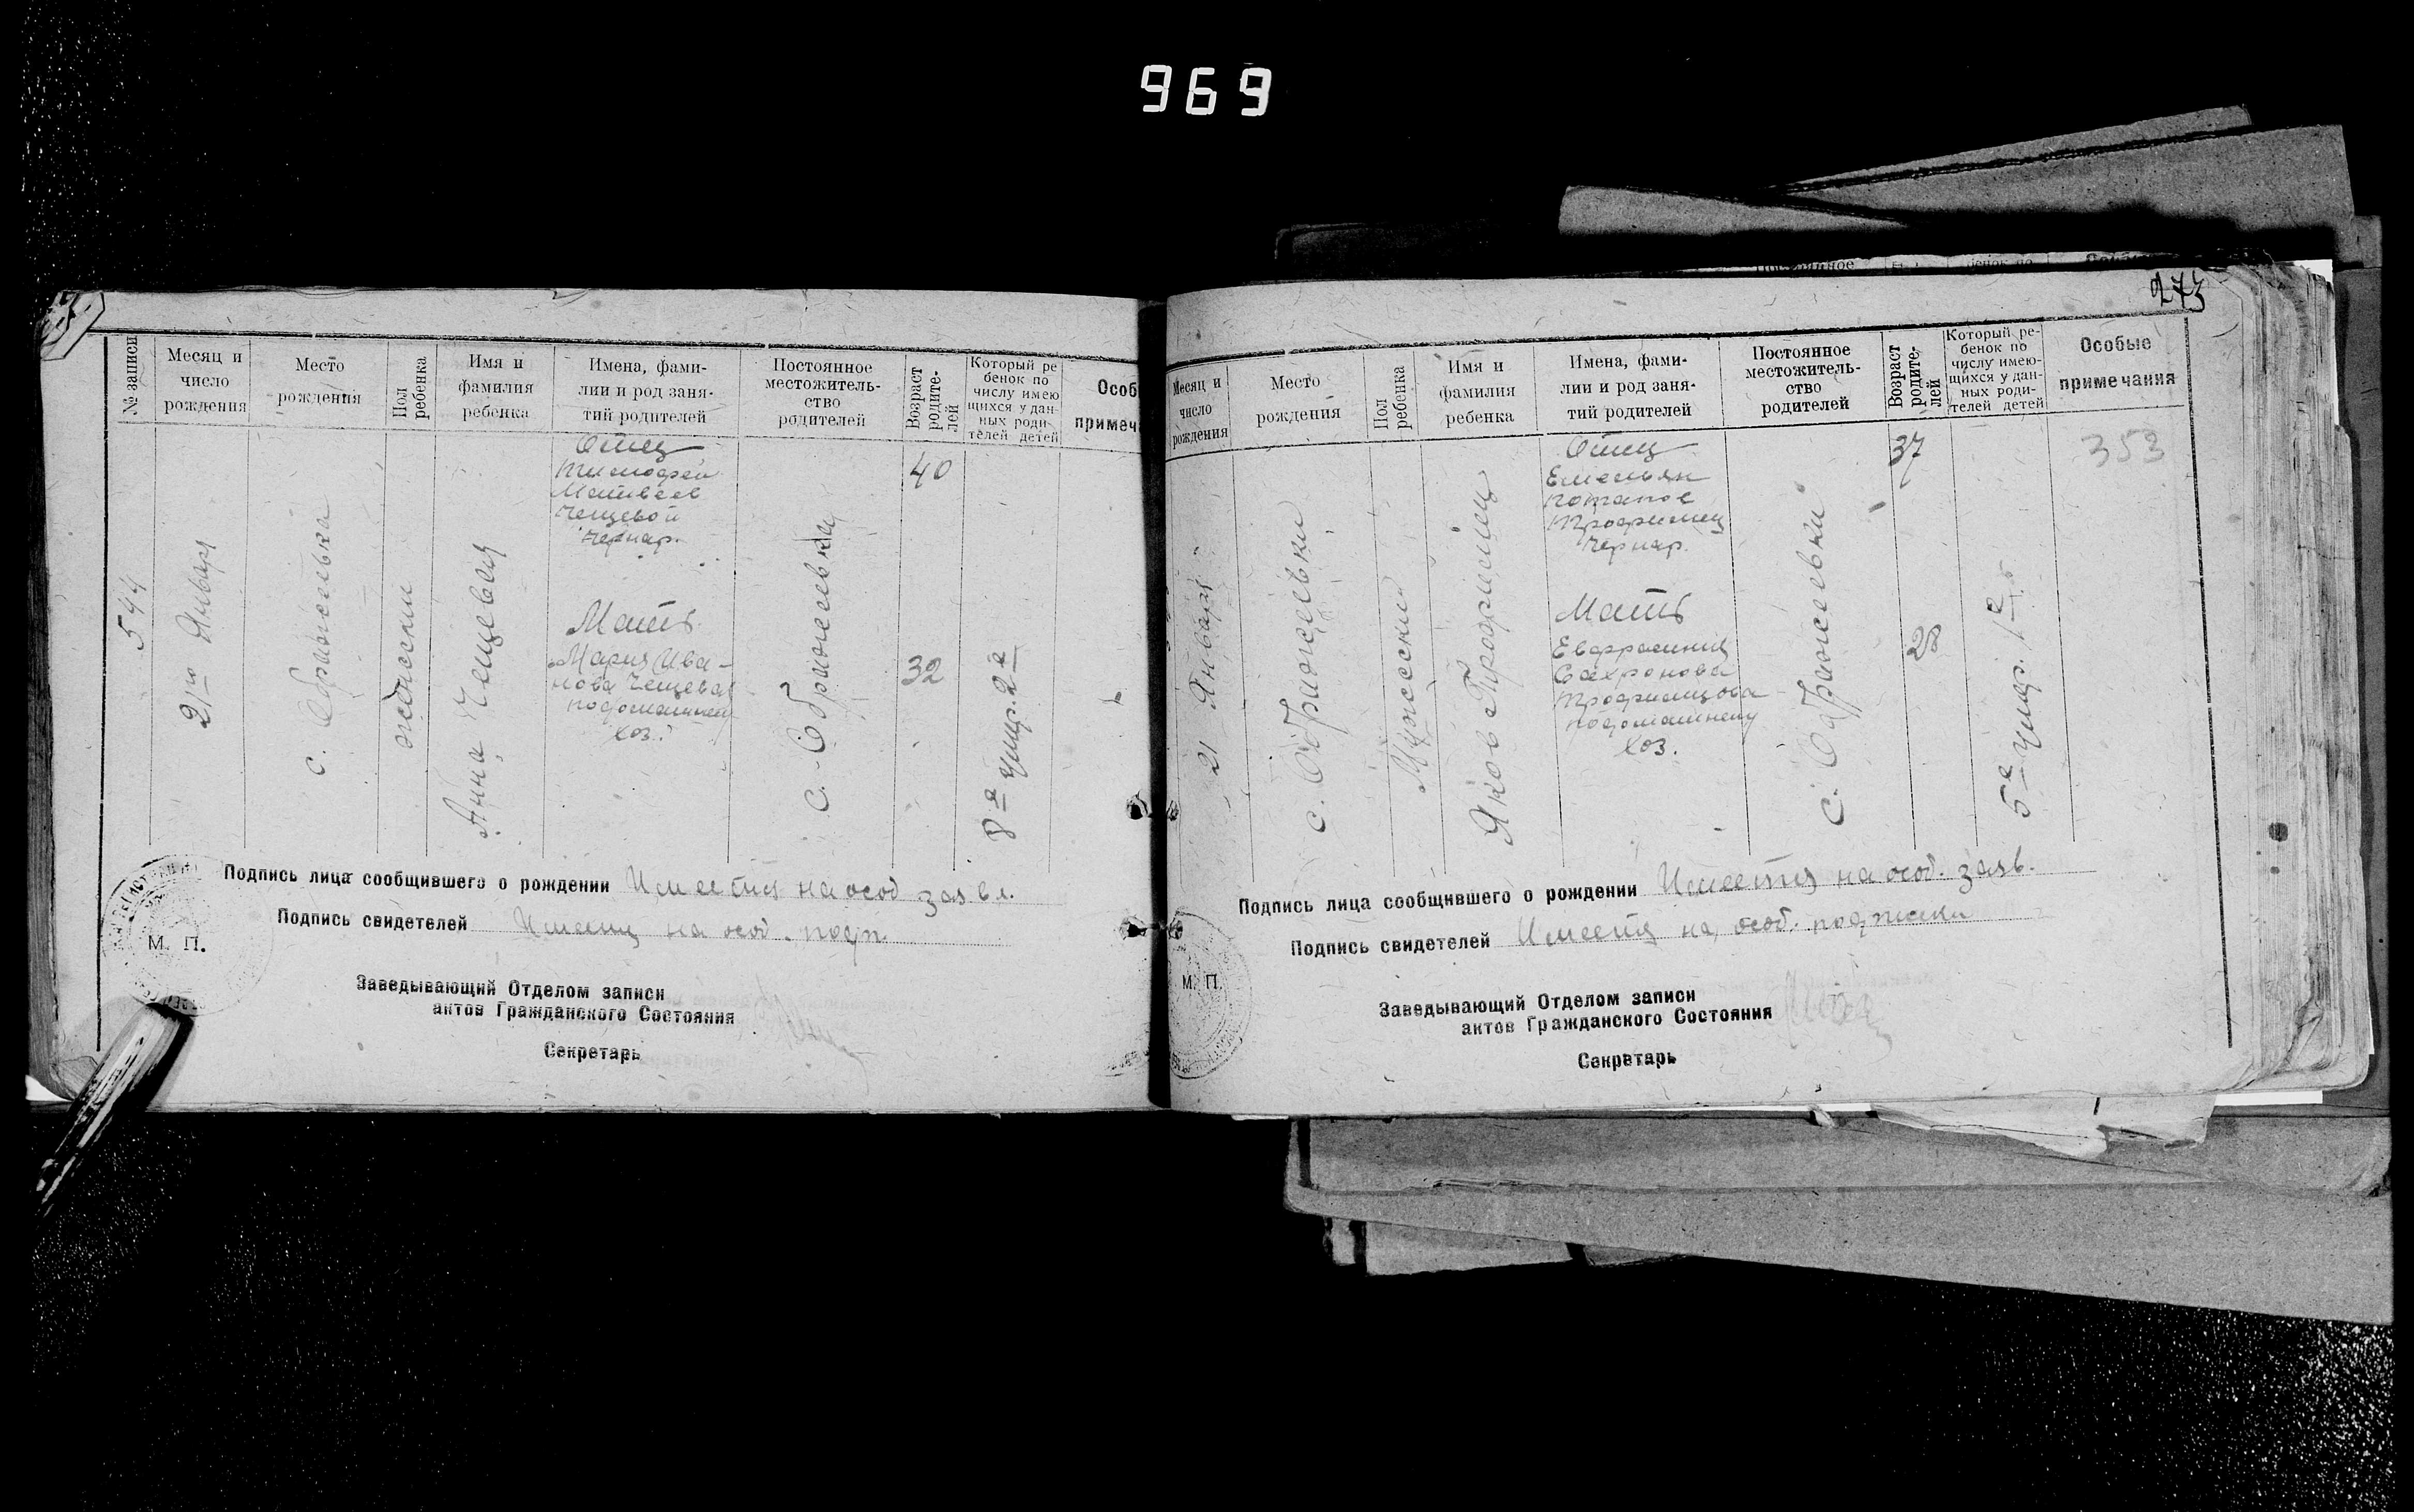 969
№ записи
Месяц и
число
рождения
Место
рождения
Пол
ребенка
Имя и
фамилия
ребенка
Имена, фами-
лии и род заня-
тий родителей
Постоянное
местожитель-
ство
родителей
Возраст
родите-
лей
Который ре
бенок по
числу имею
щихся у дан-
ных роди-
телей детей
Особ
примеч
544
21го Января
с.
женский
Анна Чещевая
Отец
Тимофей
Матвеев
Чещевой
Чернар.
Мать
Мария Ива-
нова Чещевая
подомашнему
хоз.
с.
40
32
8е умер. 2е
Подпись лица сообщившего о рождении Имеется на особ заявл.
Подпись свидетелей Имеется на особ. подп.
М. П.
Заведывающий Отделом записи
актов Гражданского Состояния
Секретарь
273
Месяц и
число
рождения
Место
рождения
Пол
ребенка
Имя и
фамилия
ребенка
Имена, фами-
лии и род заня-
тий родителей
Постоянное
местожитель-
ство
родителей
Возраст
родите-
лей
Который ре-
бенок по
числу имею-
щихся у дан-
ных роди-
телей детей
Особые
примечания
21 Января
с.
Мужеский
Яков Трофимец
Отец
Емельян
Потапов
Трофимец
Чернар.
Мать
Евфросиния
Сафронова
Трофимцова
подомашнему
хоз.
с.
37
28
5е умер. 1е
353
Подпись лица сообщившего о рождении Имеется на особ. заяв.
Подпись свидетелей Имеется на особ. подписки
М. П.
Заведывающий Отделом записи
актов Гражданского Состояния
Секретарь